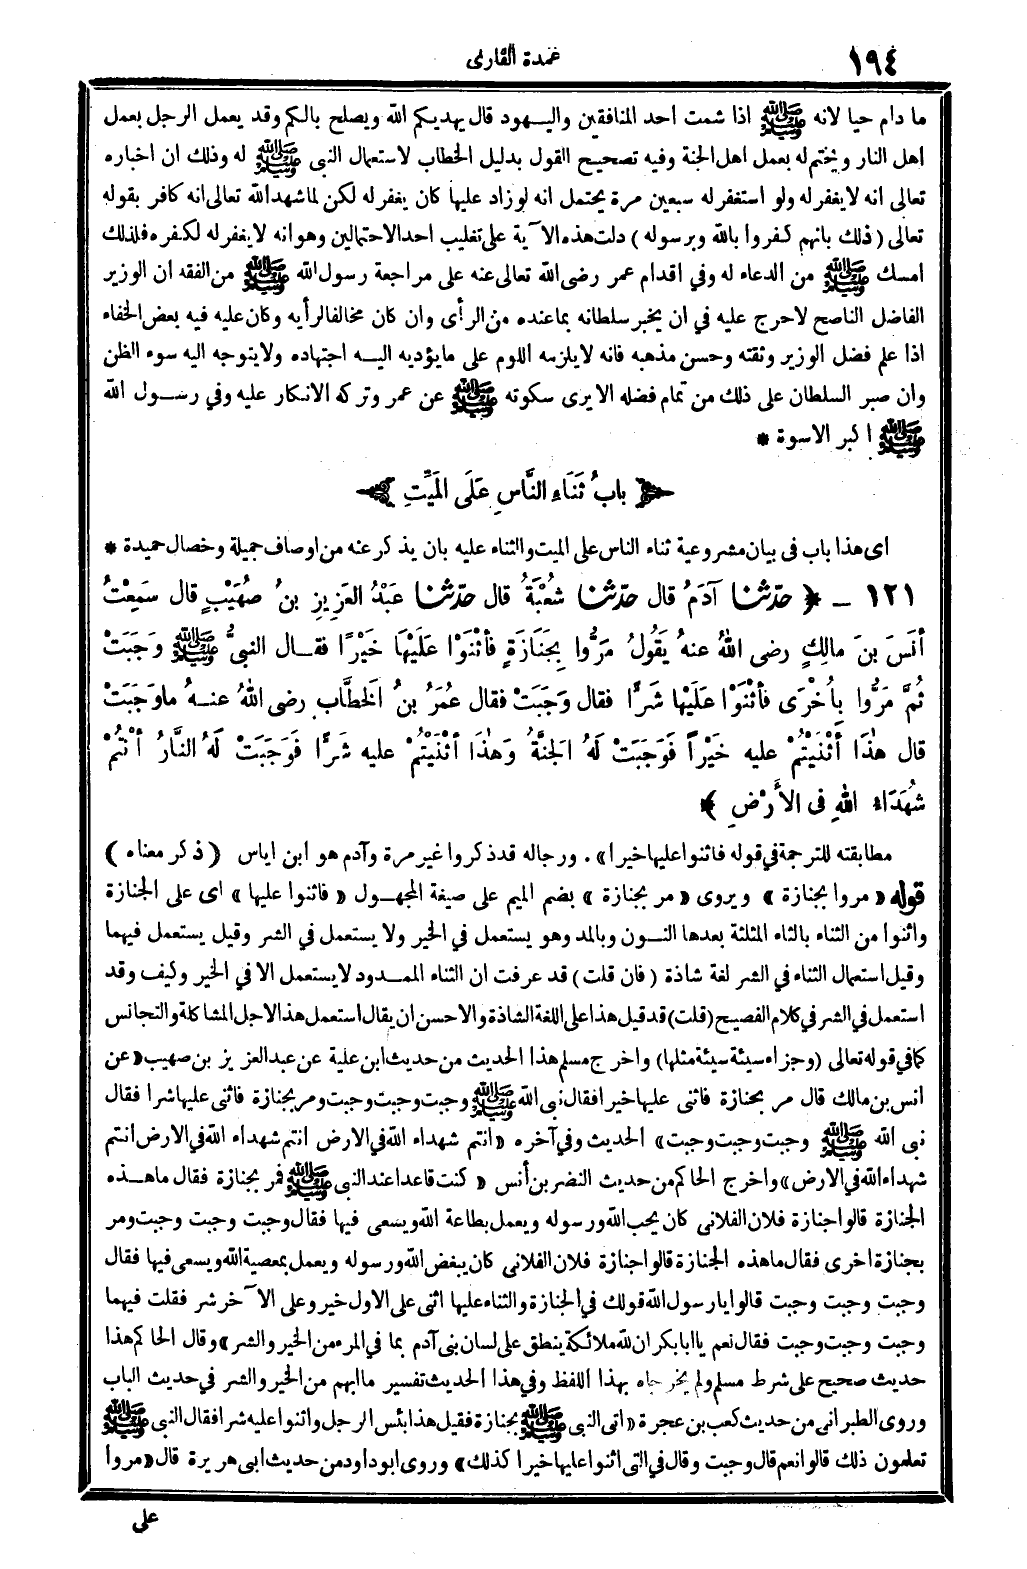 ١٩٤
عمدة القارى
ما دام حيا لانه ﷺ اذا شمت احد المنافقين واليهود قال يهديكم الله ويصلح بالكم وقد يعمل الرجل بعمل
اهل النار ويختم له بعمل اهل الجنة وفيه تصحيح القول بدليل الخطاب لاستعمال النبى ﷺ له وذلك ان اخباره
تعالى انه لا يغفر له ولو استغفر له سبعين مرة يحتمل انه لو زاد عليها كان يغفر له لكن لما شهد الله تعالى انه كافر بقوله
تعالى (ذلك بانهم كفروا بالله وبرسوله) دلت هذه الآية على تغليب احد الاحتمالين وهو انه لا يغفر له لكفره فلذلك
امسك ﷺ من الدعاء له وفي اقدام عمر رضى الله تعالى عنه على مراجعة رسول الله ﷺ من الفقه ان الوزير
الفاضل الناصح لا حرج عليه في ان يخبر سلطانه بما عنده من الرأى وان كان مخالفا لرأيه وكان عليه فيه بعض الخفاء
اذا علم فضل الوزير وثقته وحسن مذهبه فانه لا يلزمه اللوم على ما يؤديه اليه اجتهاده ولا يتوجه اليه سوء الظن
وان صبر السلطان على ذلك من تمام فضله الا يرى سكوته ﷺ عن عمر وتركه الانكار عليه وفي رسول الله
ﷺ اكبر الاسوة *
باب ُ ثَنَاءِ النَّاسِ عَلَى المَيِّتِ
اى هذا باب فى بيان مشروعية ثناء الناس على الميت والثناء عليه بان يذكر عنه من اوصاف جميلة وخصال حميدة *
١٢١ ـ ﴿ حدّثنا آدَمُ قال حدّثنا شُعْبَةُ قال حدّثنا عبْدُ العَزِيزِ بنُ صُهَيْبٍ قال سَمِعْتُ
أنَسَ بنَ مالِكٍ رضى اللهُ عنهُ يَقُولُ مَرُّوا بِجَنَازَةٍ فأثْنَوْا عَلَيْهَا خَيْرًا فقال النبىُّ ﷺ وَجَبَتْ
ثُمَّ مَرُّوا بِأُخْرَى فأثْنَوْا عَلَيْها شَرًّا فقال وَجَبَتْ فقال عُمَرُ بنُ الخطَّابِ رضى اللهُ عنه ما وَجَبَتْ
قال هٰذَا أثْنَيْتُمْ عليه خَيْراً فَوَجَبَتْ لَهُ الجنةُ وَهٰذَا أثْنَيْتُمْ عليه شَرًّا فَوَجَبَتْ لَهُ النَّارُ أنْتُمْ
شُهَدَاءُ اللهِ فى الأَرْضِ ﴾
مطابقته للترجمة في قوله فاثنوا عليها خيرا» . ورجاله قد ذكروا غير مرة وآدم هو ابن اياس (ذكر معناه)
قوله «مروا بجنازة» ويروى «مر بجنازة» بضم الميم على صيغة المجهول «فاثنوا عليها» اى على الجنازة
واثنوا من الثناء بالثاء المثلثة بعدها النون وبالمد وهو يستعمل في الخير ولا يستعمل في الشر وقيل يستعمل فيهما
وقيل استعمال الثناء في الشر لغة شاذة (فان قلت) قد عرفت ان الثناء الممدود لا يستعمل الا في الخير وكيف وقد
استعمل في الشر في كلام الفصيح (قلت) قد قيل هذا على اللغة الشاذة والاحسن ان يقال استعمل هذا لاجل المشاكلة والتجانس
كما في قوله تعالى (وجزاء سيئة سيئة مثلها) واخرج مسلم هذا الحديث من حديث ابن علية عن عبد العزيز بن صهيب «عن
انس بن مالك قال مر بجنازة فاثنى عليها خيرا فقال نبى الله ﷺ وجبت وجبت وجبت ومر بجنازة فاثنى عليها شرا فقال
نبى الله ﷺ وجبت وجبت وجبت» الحديث وفي آخره «انتم شهداء الله في الارض انتم شهداء الله في الارض انتم
شهداء الله في الارض» واخرج الحاكم من حديث النضر بن أنس «كنت قاعدا عند النبى ﷺ فمر بجنازة فقال ما هذه
الجنازة قالوا جنازة فلان الفلانى كان يحب الله ورسوله ويعمل بطاعة الله ويسعى فيها فقال وجبت وجبت وجبت ومر
بجنازة اخرى فقال ما هذه الجنازة قالوا جنازة فلان الفلانى كان يبغض الله ورسوله ويعمل بمعصية الله ويسعى فيها فقال
وجبت وجبت وجبت قالوا يا رسول الله قولك في الجنازة والثناء عليها اثنى على الاول خير وعلى الآخر شر فقلت فيهما
وجبت وجبت وجبت فقال نعم يا ابا بكر ان لله ملائكة ينطق على لسان بنى آدم بما في المرء من الخير والشر» وقال الحاكم هذا
حديث صحيح على شرط مسلم ولم يخرجاه بهذا اللفظ وفي هذا الحديث تفسير ما ابهم من الخير والشر في حديث الباب
وروى الطبرانى من حديث كعب بن عجرة «اتى النبى ﷺ بجنازة فقيل هذا بئس الرجل واثنوا عليه شرا فقال النبى ﷺ
تعلمون ذلك قالوا نعم قال وجبت وقال في التى اثنوا عليها خيرا كذلك» وروى ابو داود من حديث ابى هريرة قال «مروا
على